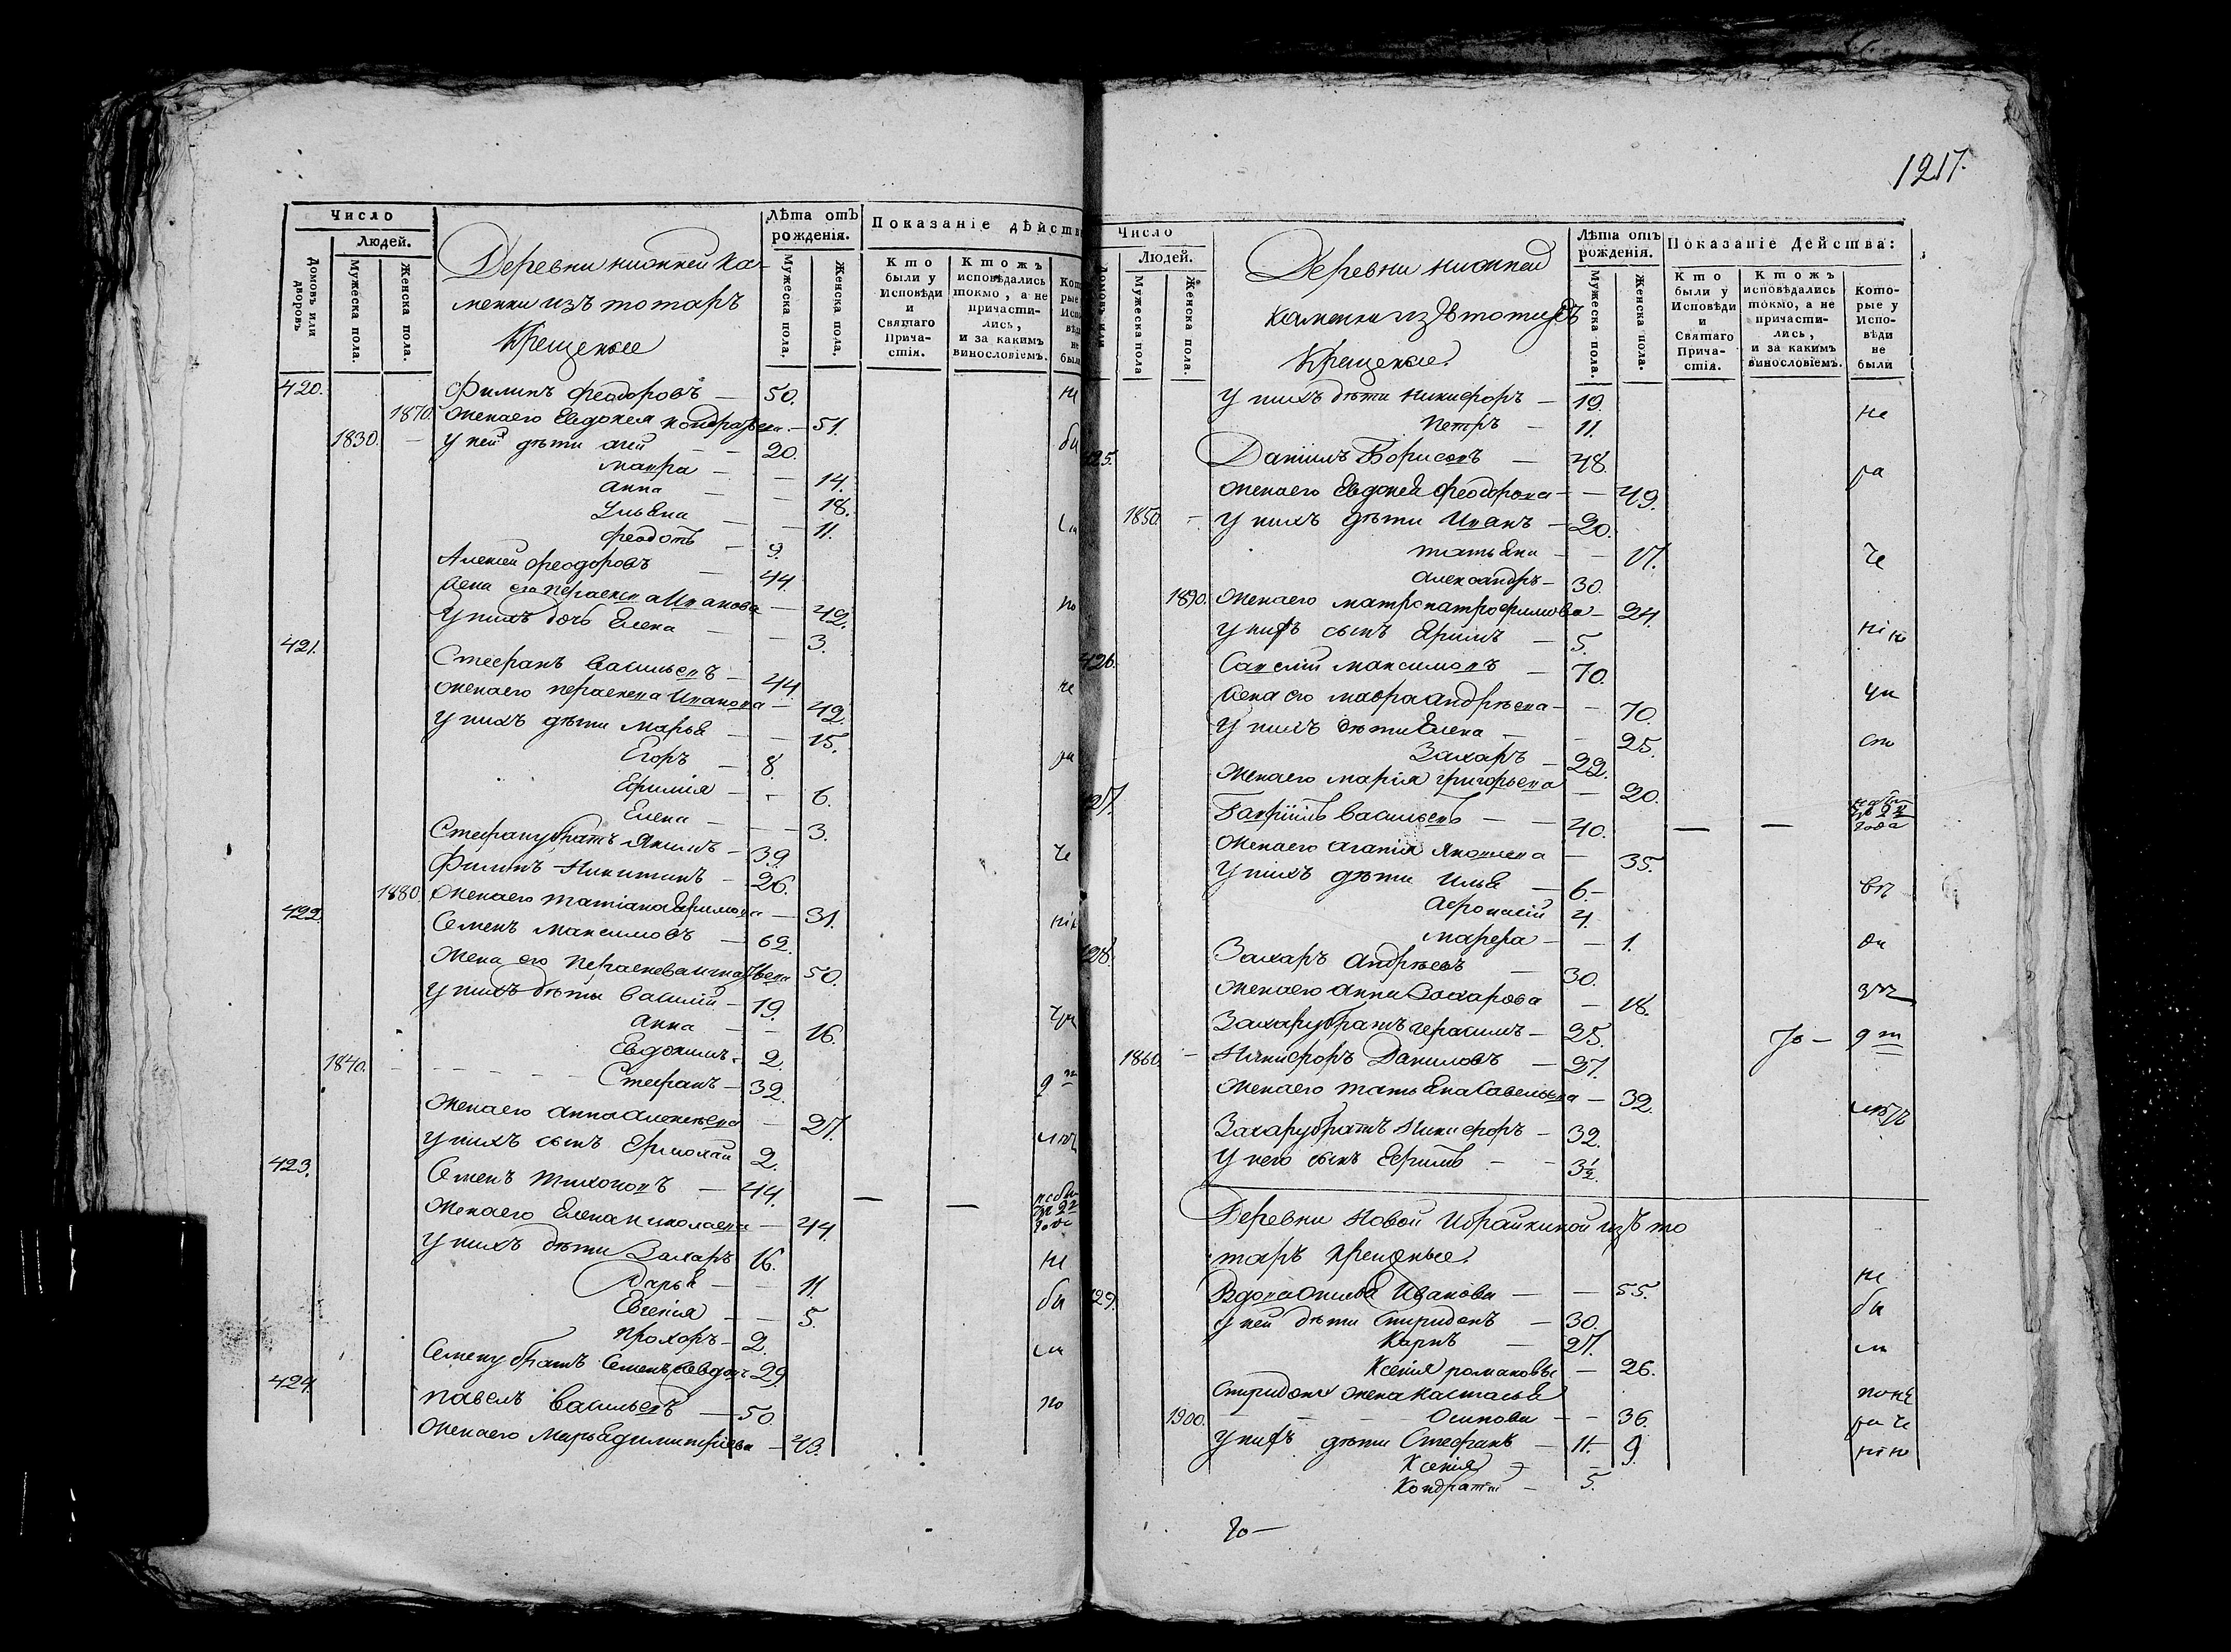 Число
Людей.
Домовъ или дворовъ
Мужеска пола.
Женска пола.
Деревни нижней Ка-
менки изъ тотаръ
Крещеные
Лѣта отъ рожденія.
Мужеска пола,
Женска пола,
Показаніе дѣйств
Кто были у Исповѣди и Святаго Прича-стія.
Ктожъ исповѣдались токмо, а не причасти-лись, и за какимъ винословіемъ.
420. Филипъ Феодоровъ — 50. не
1870. Жена его Евдокея — 51.
1830. — у ней дѣти — 20. бы
Мавра — 14.
Анна — 18.
Ульяна — 11.
Феодотъ — 9.
Алексей Феодоровъ — 44.
Жена его Параскева Иванова — 42. по
У нихъ дочь Елена — 3.
421. Стефанъ Васильевъ — 44.
Жена его Параскева Иванова — 42.
У нихъ дѣти Марья — 15.
Егоръ — 8. ра
Ефимия — 6.
Елена — 3.
Стефану братъ Якимъ — 39. че
Филипъ Никитинъ — 26.
1880. Жена его Татіана — 31.
422. Семенъ Максимовъ — 62.
Жена его Параскева 50.
У нихъ дѣти Василій — 19.
Анна — 16.
Евдокимъ — 2.
1840. Стефанъ — 32. 9 ть
Жена его Анна Алексѣева — 27.
У нихъ сынъ Ермолай 2.
423. Семенъ Тихоновъ — 44.
Жена его Елена Николаева — 44.
года
У нихъ дѣти Захаръ 16. не
Дарья — 11.
Евгенія — 5. бы
Прохоръ — 2.
Семену братъ Семенъ 29.
424. Павелъ Васильевъ — 50. по
Жена его Марья Димитріева — 43.
1217.
Число
Людей.
Мужеска пола
Женска пола.
Деревни нижней
Каменки изъ тотаръ
Крещеные
Лѣта отъ рожденія.
Мужеска пола.
Женска пола.
Показаніе Действа:
Кто были у Исповѣди и Святаго Прича-стія.
Ктожъ исповѣдались токмо, а не причасти-лись, и за какимъ винословіемъ.
Кото-рые у Испо-вѣди не были
У нихъ дѣти Никифоръ — 19. не
Петръ — 11.
425. Даніилъ Борисовъ — 48. ра
Жена его Евдокея Феодорова — 49.
1850. — У нихъ дѣти Иванъ — 20.
Татьяна — 17. че
Александръ — 30.
1890. Жена его Матрона Трофимова — 24.
У нихъ сынъ Ефимъ — 5.
426. Савелій Максимовъ — 70.
Жена его Мавра Андрѣева — 70.
У нихъ дѣти Елена — 25.
Захаръ — 22.
Жена его Марія Григорьева — 20.
427. Гавріилъ Васильевъ — 40. года
Жена его Агапія Яковлева — 35.
У нихъ дѣти Илья — 6.
Афонасій 4.
Марфа — 1.
428. Захаръ Андрѣевъ — 30.
Жена его Анна Захарова — 18.
Захару братъ Герасимъ — 25. 9 ть
1860. — Никифоръ Даниловъ — 27.
Жена его Татьяна Савельева — 32.
Захару братъ Никифоръ — 32. лѣтъ
У него сынъ Ефимъ — 3½.
Деревни Новой Ибрайкиной изъ то
таръ крещеные
429. Вдова Иванова — 55. не
У ней дѣти Спиридонъ — 30. бы
Карпъ — 27.
Ксенія Романова — 26. ли
Спиридона жена Настасья
1900. Осипова — 36.
У нихъ дѣти Стефанъ — 11.
Ксенія — 9.
Кондратій — 5.